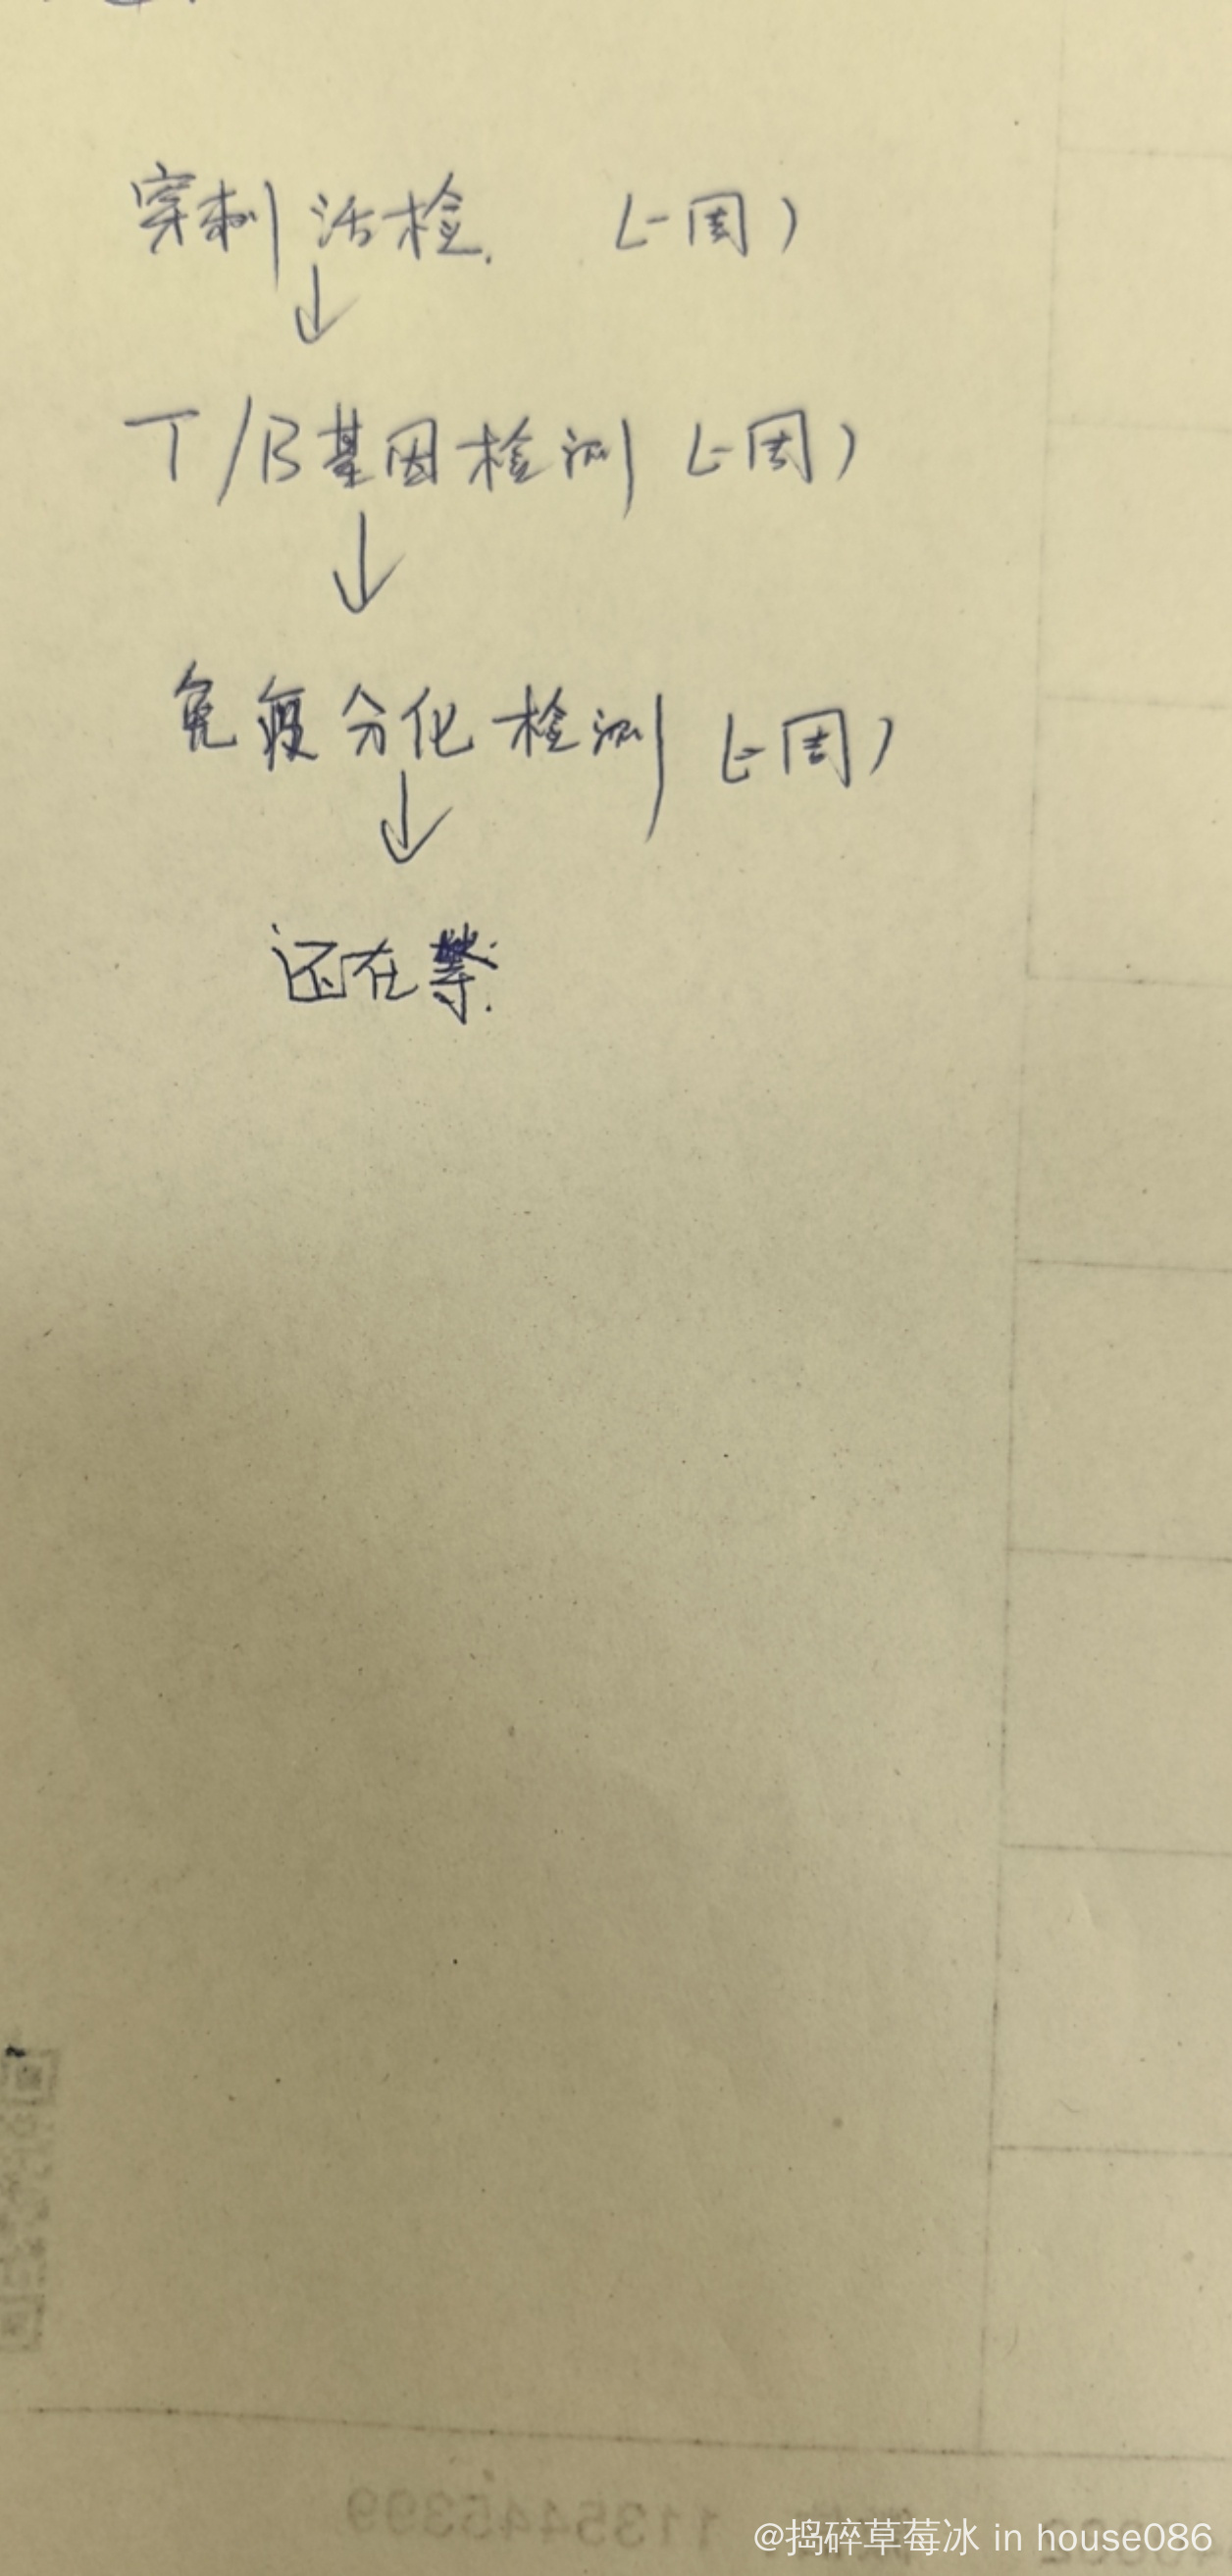 穿刺活检. (一周)
T/B基因检测 (一周)
免疫分化检测 (一周)
还在等.
1135445399
@捣碎草莓冰 in house086